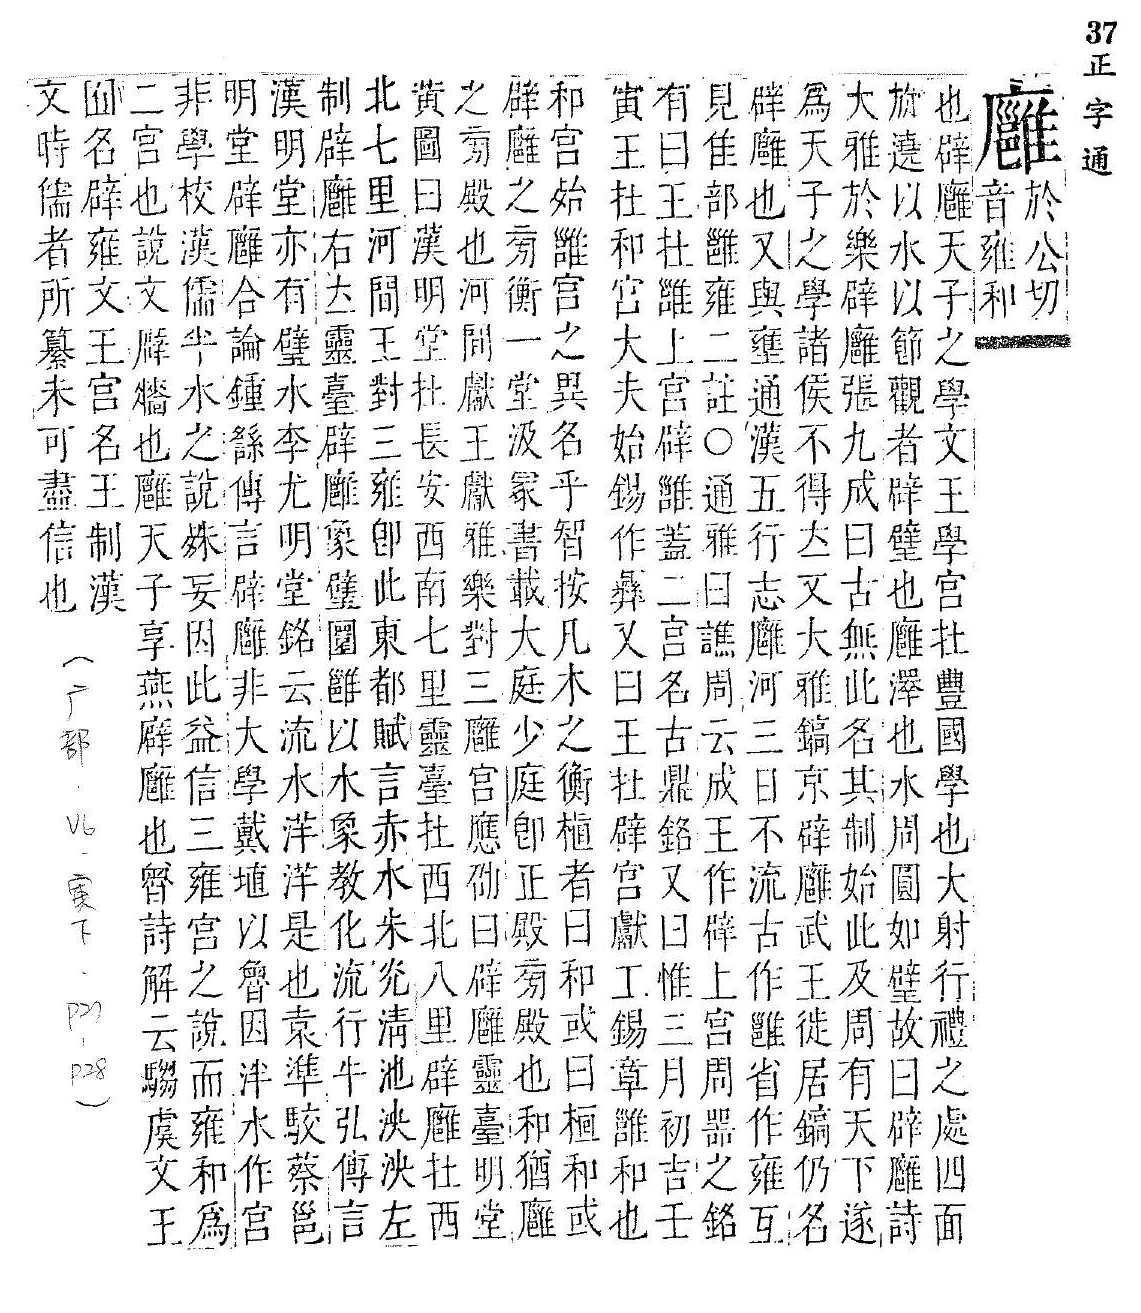 37
正字通
廱
於公切
音雍和
也辟廱天子之學文王學宮在豐國學也大射行禮之處四面
旋遶以水以節觀者辟璧也廱澤也水周圓如璧故曰辟廱詩
大雅於樂辟廱張九成曰古無此名其制始此及周有天下遂
爲天子之學諸侯不得立又大雅鎬京辟廱武王徙居鎬仍名
辟廱也又與壅通漢五行志廱河三日不流古作雝省作雍互
見隹部雝雍二註○通雅曰譙周云成王作辟上宮周器之銘
有曰王在雝上宮辟雝蓋二宮名古鼎銘又曰惟三月初吉壬
寅王在和宮大夫始錫作彝又曰王在辟宮獻工錫章雝和也
和宮始雝宮之異名乎智按凡木之衡植者曰和或曰桓和或
辟廱之旁衡一堂汲冢書載大庭少庭卽正殿旁殿也和猶廱
之旁殿也河閒獻王獻雅樂對三廱宮應劭曰辟廱靈臺明堂
黃圖曰漢明堂在長安西南七里靈臺在西北八里辟廱在西
北七里河間王對三雍卽此東都賦言赤水朱光淸池泱泱左
制辟廱右立靈臺辟廱象璧圜雝以水象教化流行牛弘傳言
漢明堂亦有璧水李尤明堂銘云流水洋洋是也袁準駮蔡邕
明堂辟廱合論鍾繇傳言辟廱非大學戴埴以魯因泮水作宮
非學校漢儒半水之說殊妄因此益信三雍宮之說而雍和爲
二宮也說文廦牆也廱天子享燕廦廱也嚳詩解云騶虞文王
囿名辟雍文王宮名王制漢
文時儒者所纂未可盡信也
(广部．V6．寅下．P27-P28)